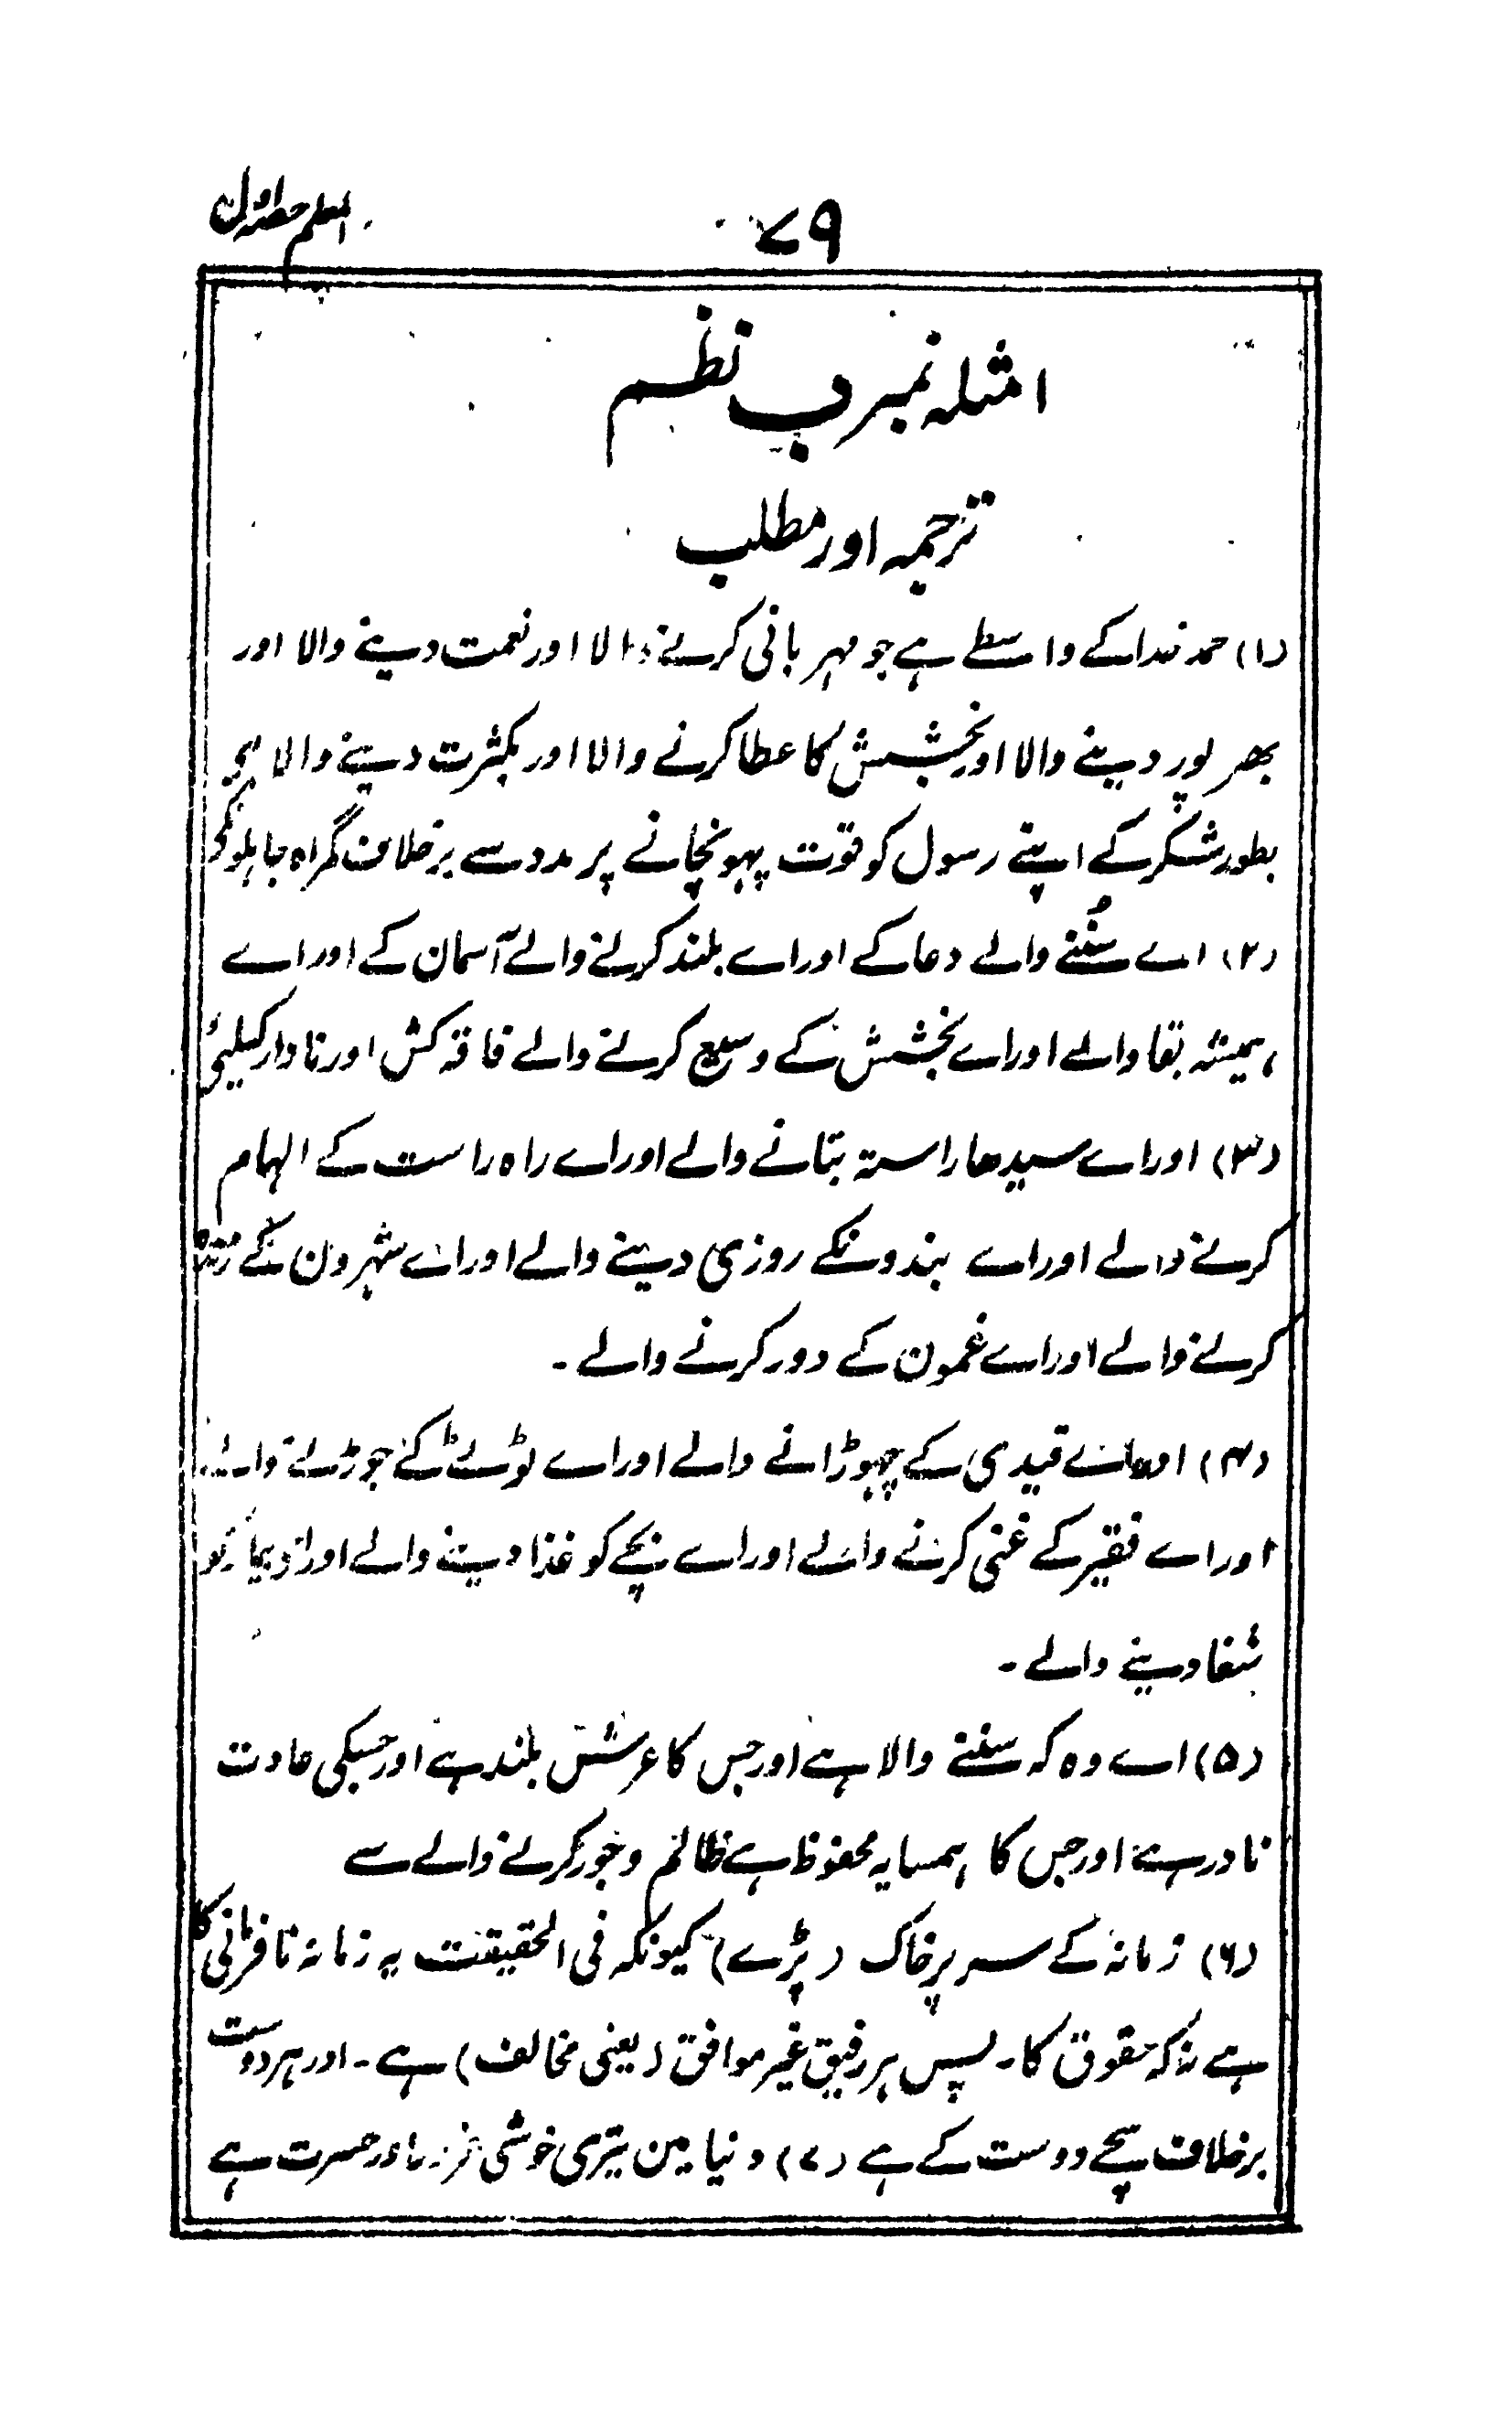 المعلم حصہ اول
۷۹
امثلہ نمبر ب نظم
ترجمہ اور مطلب
(۱) حمد خدا کے واسطے ہے جو مہربانی کرنے والا اور نعمت دینے والا اور
بھر پور دینے والا اور بخشش کا عطا کرنے والا اور بکثرت دینے والا ہی
بطور شکر کے اپنے رسول کو قوت پہونچانے پر مدد سے برخلاف گمراہ جاہلونکے
(۲) اے سُننے والے دعا کے اور اے بلند کرنے والے آسمان کے اور اے
ہمیشہ بقا والے اور اے بخشش کے وسیع کرنے والے فاقہ کش اور نادار کیلیٔے
(۳) اور اے سیدھا راستہ بتانے والے اور اے راہ راست کے الہام
کرنے والے اور اے بندونکے روزی دینے والے اور اے شہرون کے زندہ
کرنے والے اور اے غمون کے دور کرنے والے ۔
(۴) اور اے قیدی کے چہوڑانے والے اور اے ٹوٹے کے جوڑنے والے
اور اے فقیر کے غنی کرنے والے اور اے بچے کو غذا دینے والے اور اے بیمار کو
شفا دینے والے ۔
(۵) اے وہ کہ سننے والا ہے اور جس کا عرشش بلند ہے اور جسکی عادت
نادر ہے اور جس کا ہمسایہ محفوظ ہے ظالم وجور کرنے والے سے
(۶) زمانہ کے سر پر خاک (پڑے) کیونکہ فی الحقیقت یہ زمانہ نافرمانی کا
ہے نہ کہ حقوق کا ۔ پس ہر رفیق غیر موافق (یعنی مخالف) ہے ۔ اور ہر دوست
برخلاف سچے دوست کے ہے (۷) دنیا مین تیری خوشی اور حسرت ہے